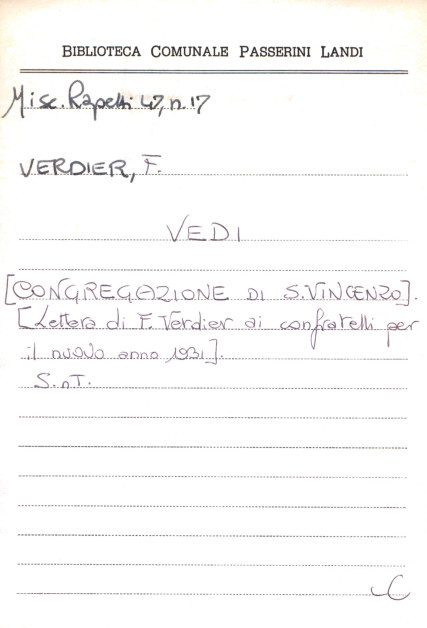 BIBLIOTECA COMUNALE PASSERINI LANDI
Misc. Rapetti 47, n. 17
VERDIER, F.
VEDI
[CONGREGAZIONE DI S. VINCENZO].
[Lettera di F. Verdier ai confratelli per
il nuovo anno 1931].
S.n.T.
C